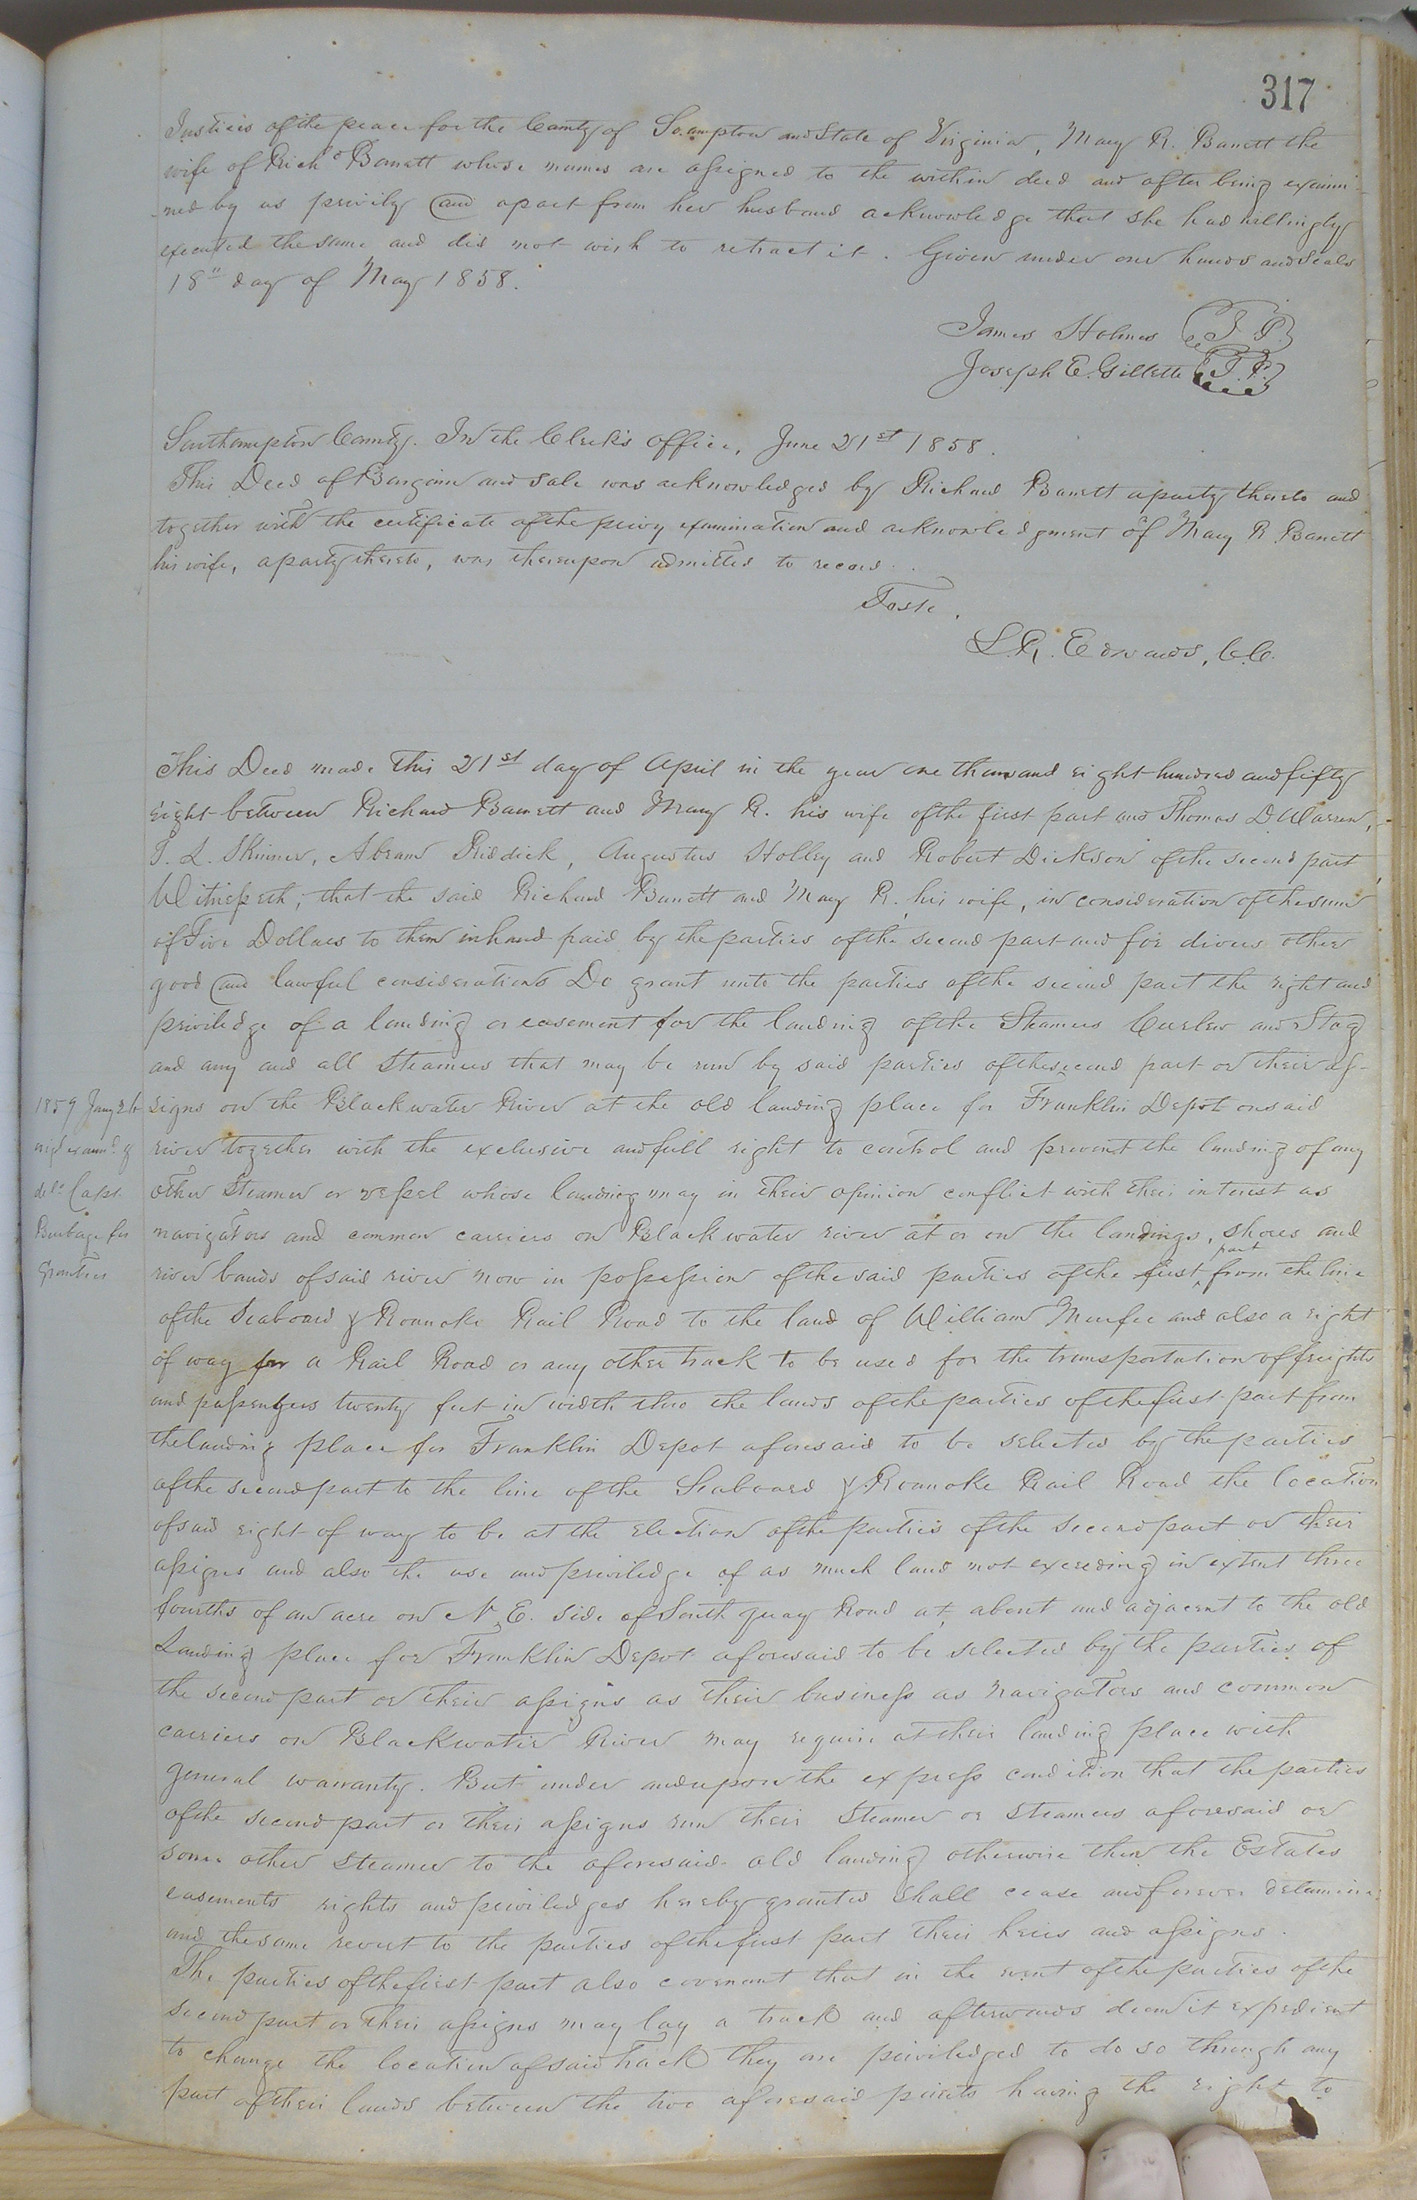 317
Justices of the peace for the County of So.ampton and State of Virginia, Mary R. Barrett the
wife of Richd Barrett whose names are assigned to the within deed and after being exami-
ned by us privily and apart from her husband acknowledge that she had willingly
executed the same and did not wish to retract it. Given under our hands and seals
18" day of May 1858.
James Holmes J P.
Joseph E. Gillette J. P.
Southampton County. In the Clerk's office, June 21st 1858.
This Deed of Bargain and sale was acknowledged by Richard Barrett a party thereto and
together with the certificate of the privy examination and acknowledgment of Mary R. Barrett
his wife, a party thereto, was thereupon admitted to record.
Teste,
L. R. Edwards, C.C.
This Deed made this 21st day of April in the year one thousand eight hundred and fifty
eight between Richard Barrett and Mary R. his wife of the first part and Thomas D. Warren,
T. L. Skinner, Abram Riddick, Augustus Holley and Robert Dickson of the second part,
Witnesseth; that the said Richard Barrett and Mary R. his wife, in consideration of the sum
of Five Dollars to them in hand paid by the parties of the second part and for divers other
good and lawful considerations Do grant unto the parties of the second part the right and
priviledge of a landing or easement for the landing of the Steamers Curlew and Stag
and any and all Steamers that may be run by said parties of the second part or their as-
signs on the Blackwater River at the old landing place for Franklin Depot on said
river together with the exclusive and full right to control and prevent the landing of any
other Steamer or vessel whose landing may in their opinion conflict with their interest as
navigators and common carriers on Blackwater river at or on the landings, shores and
river bands of said river now in possession of the said parties of the first part from the line
of the Seaboard & Roanoke Rail Road to the land of William Murfee and also a right
of way for a Rail Road or any other track to be used for the transportation of freights
and passengers twenty feet in width thro the lands of the parties of the first part from
the landing place for Franklin Depot aforesaid to be selected by the parties
of the second part to the line of the Seaboard & Roanoke Rail Road the location
of said right of way to be at the election of the parties of the second part or their
assigns and also the use and priviledge of as much land not exceeding in extent three
fourths of an acre on N. E. side of South quay Road at, about and adjacent to the old
Landing place for Franklin Depot aforesaid to be selected by the parties of
the second part or their assigns as their business as navigators and common
carriers on Blackwater River may require at their landing place with
general warranty. But under and upon the express condition that the parties
of the second part or their assigns run their Steamer or Steamers aforesaid or
some other steamer to the aforesaid old landing otherwise then the Estates
easements rights and priviledges hereby granted shall cease and forever determine
and the same revert to the parties of the first part their heirs and assigns.
The parties of the first part also covenant that in the event of the parties of the
second part or their assigns may lay a track and afterwards deem it expedient
to change the location of said track they are priviledged to do so through any
part of their lands between the two aforesaid points having the right to
1859 Jany 26
exd & 
deld Capt.
Burbage for
Grantees